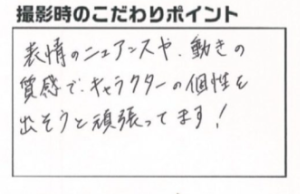 撮影時のこだわりポイント
表情のニュアンスや、動きの
質感で、キャラクターの個性を
出そうと頑張ってます！